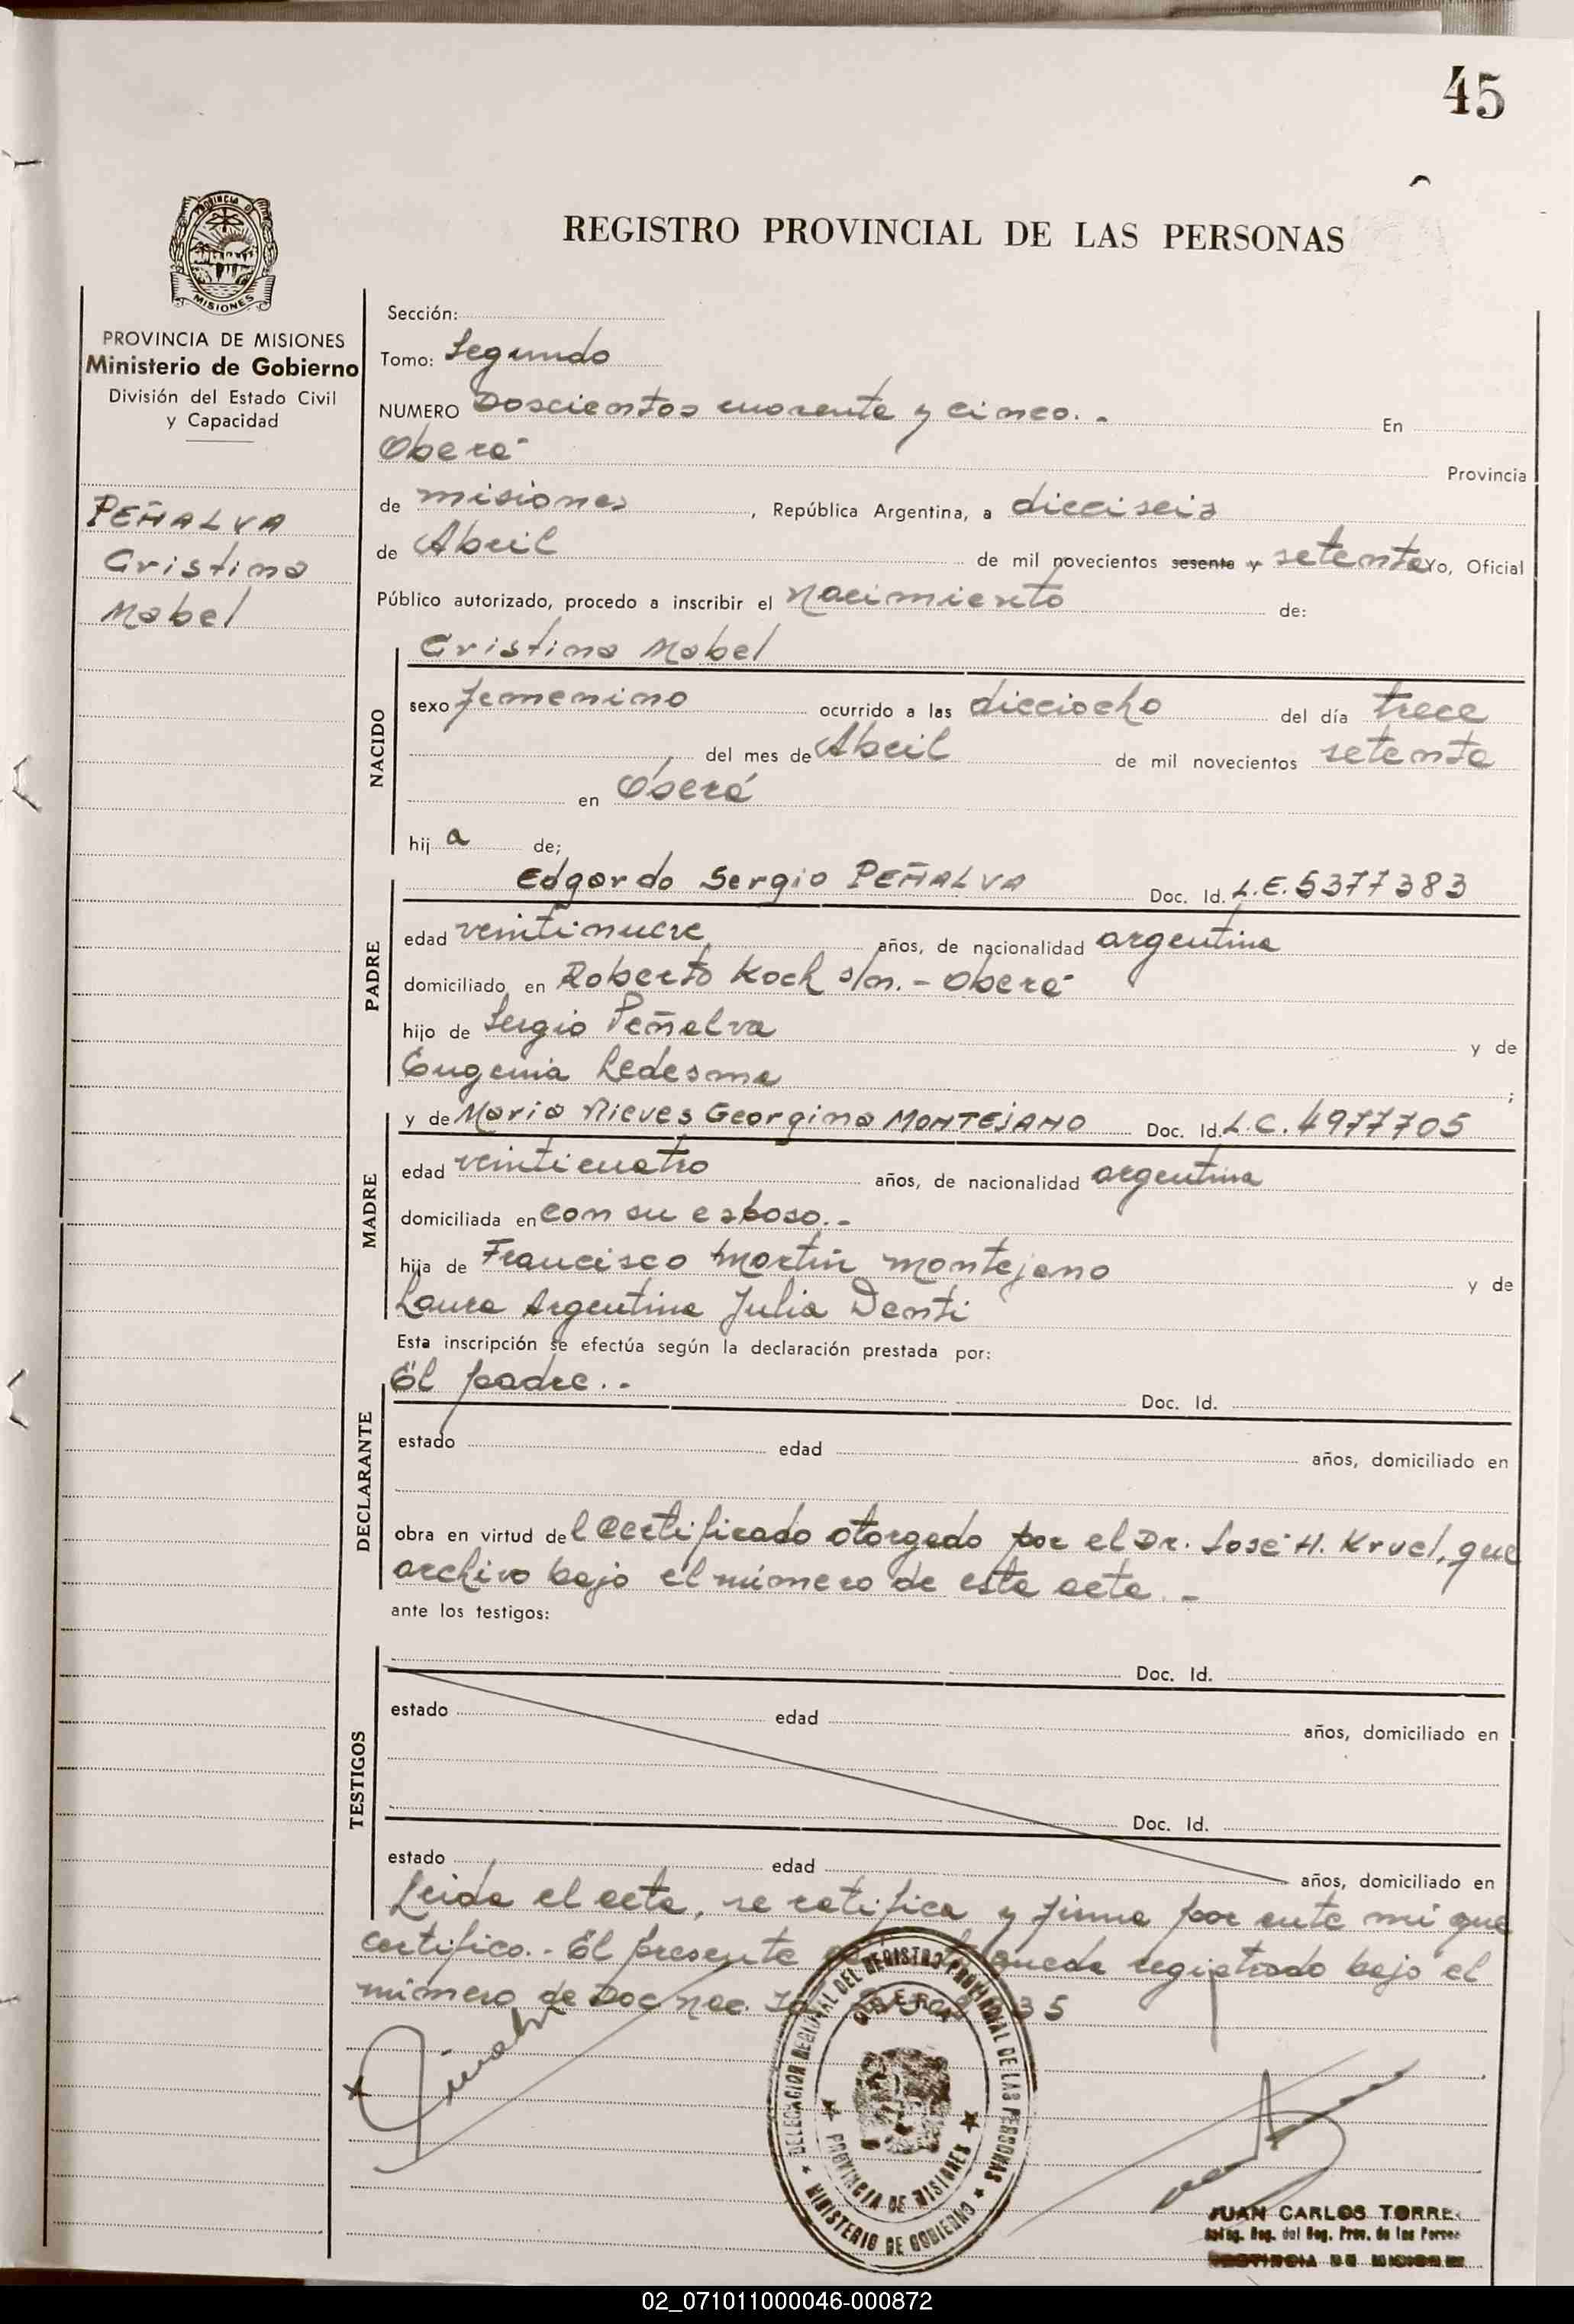 45
REGISTRO PROVINCIAL DE LAS PERSONAS
PROVINCIA DE
MISIONES
PROVINCIA DE MISIONES
Ministerio de Gobierno
División del Estado Civil
y Capacidad
PEÑALVA
Cristina
Mabel
Sección:
Tomo: Segundo
NUMERO Doscientos cuarenta y cinco.- En
Oberá Provincia
de misiones, República Argentina, a dieciseis
de Abril de mil novecientos sesenta y setenta Yo, Oficial
Público autorizado, procedo a inscribir el nacimiento de:
Cristina Mabel
NACIDO
sexo femenino ocurrido a las dieciocho del día trece
del mes de Abril de mil novecientos setenta
en Oberá
hij a de;
PADRE
Edgardo Sergio PEÑALVA Doc. Id. L.E. 5377383
edad veintinueve años, de nacionalidad argentina
domiciliado en Roberto Koch s/n.- Oberá
hijo de Sergio Peñalva y de
Eugenia Ledesma ;
MADRE
y de Maria Nieves Georgina MONTEJANO Doc. Id. L.C. 4977705
edad veinticuatro años, de nacionalidad argentina
domiciliada en con su esposo.-
hija de Francisco Martín Montejano y de
Laura Argentina Julia Denti
Esta inscripción se efectúa según la declaración prestada por:
DECLARANTE
El padre.- Doc. Id.
estado edad años, domiciliado en
obra en virtud del certificado otorgado por el Dr. José H. Kruel, que
archivo bajo el número de esta acta.-
ante los testigos:
TESTIGOS
Doc. Id.
estado edad años, domiciliado en
Doc. Id.
estado edad años, domiciliado en
Leida el acta, se ratifica y firma por ante mí que
certifico.- El presente queda registrado bajo el
número de Doc. Nac. Id. 35
DELEGACION REGIONAL DEL REGISTRO PROVINCIAL DE LAS PERSONAS
OBERA
PROVINCIA DE MISIONES
MINISTERIO DE GOBIERNO
JUAN CARLOS TORRES
Reg. del Reg. Prov. de las Person
PROVINCIA DE MISIONES
02_071011000046-000872